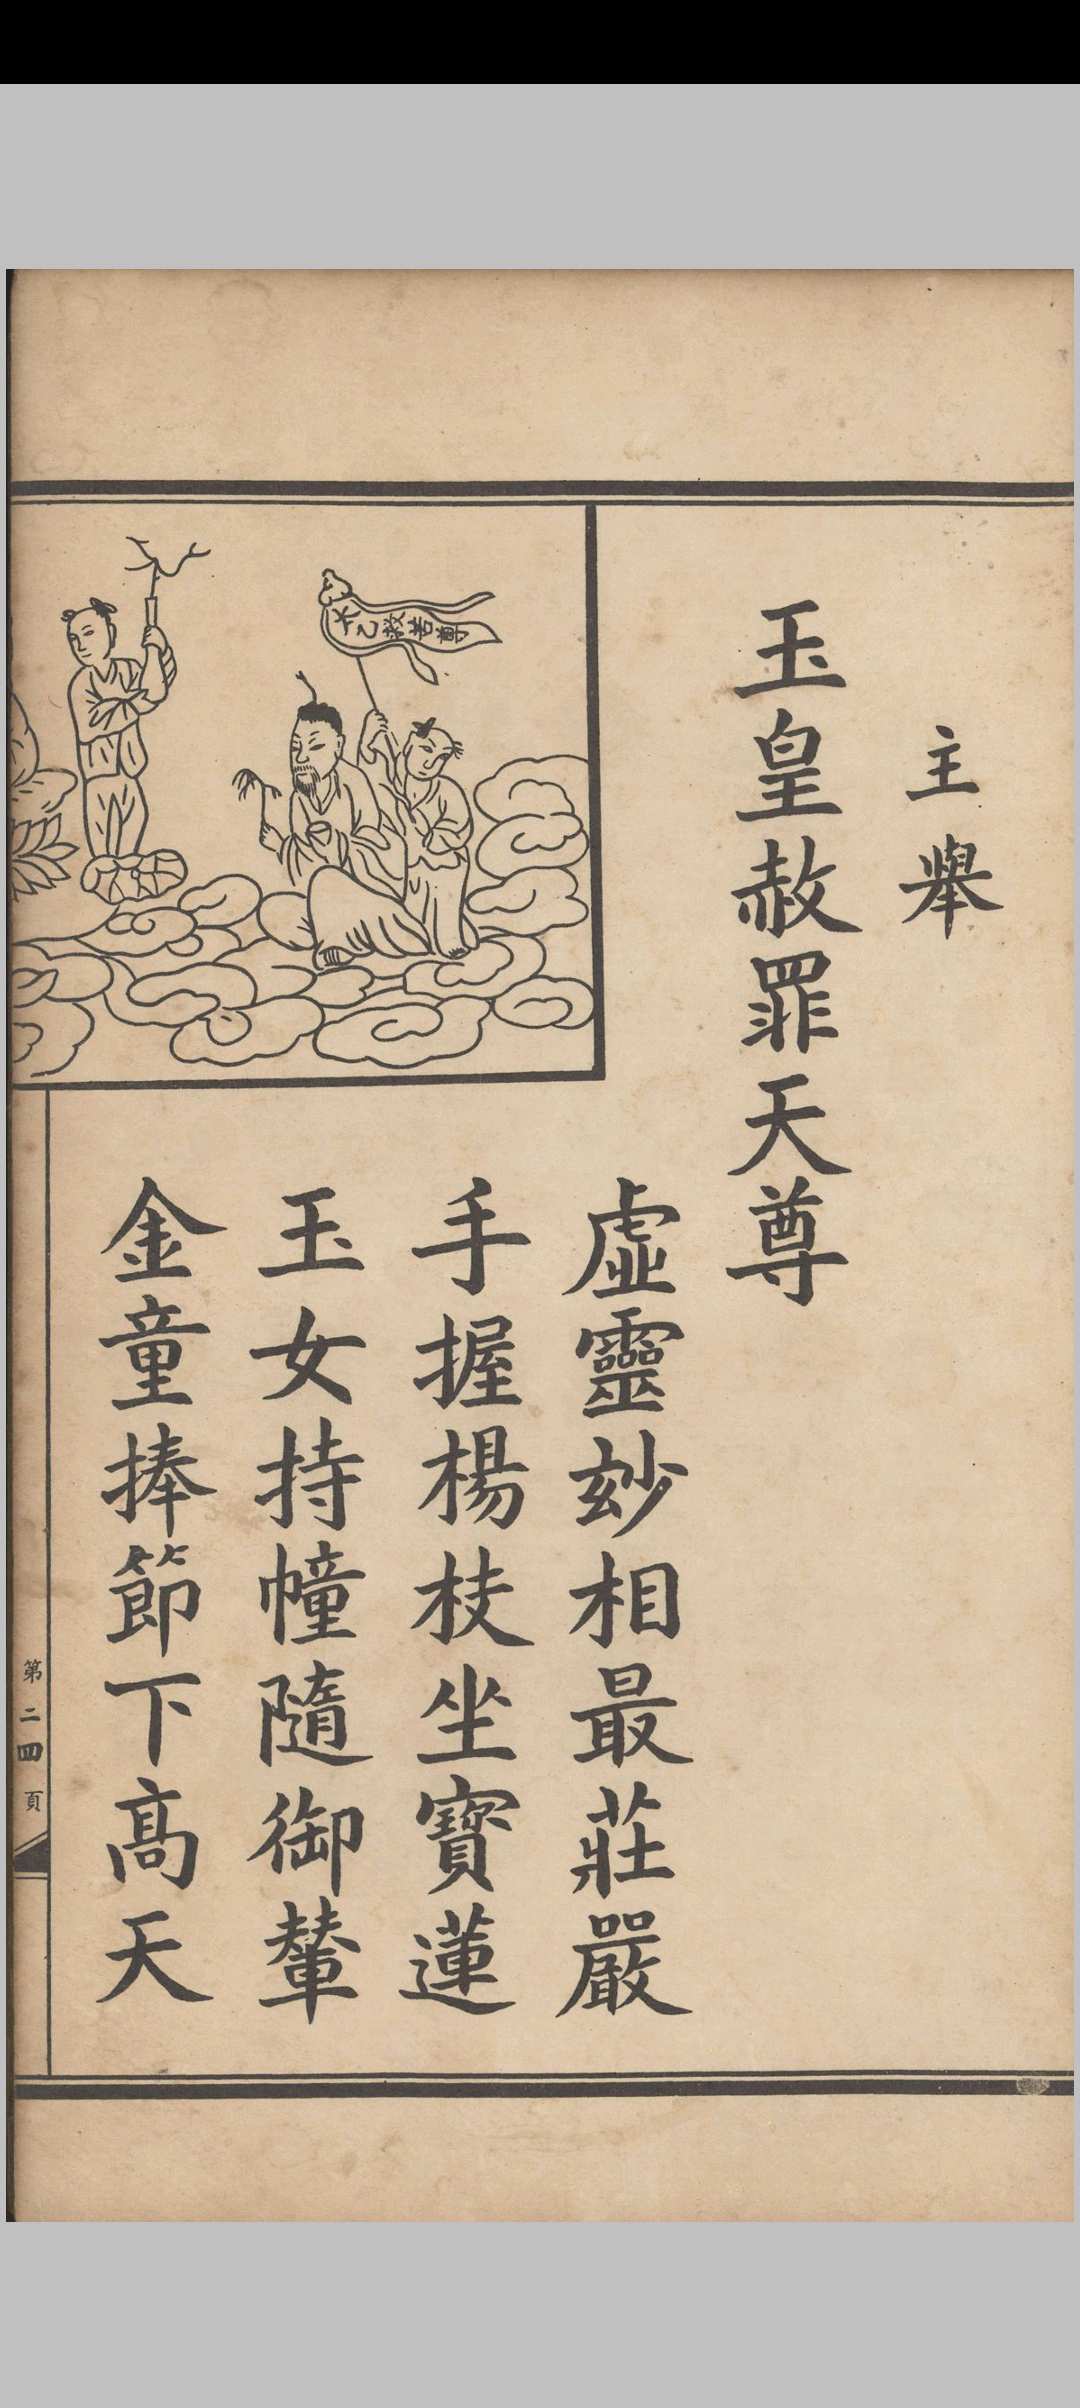 主舉
玉皇赦罪天尊
虛靈玅相最莊嚴
手握楊枝坐寶蓮
玉女持幢隨御輦
金童捧節下高天
太乙救苦尊
第二四頁